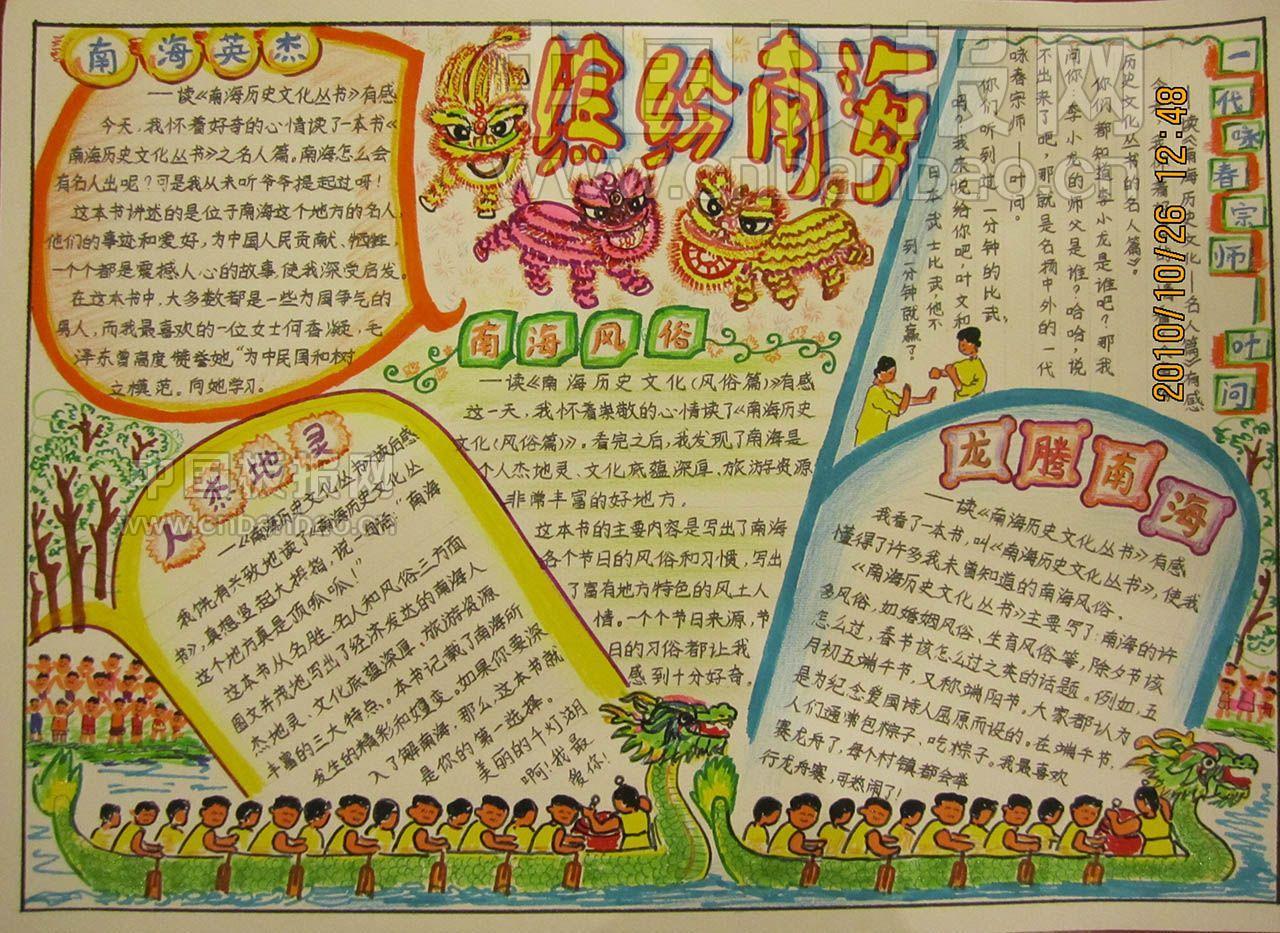 缤纷南海
南海英杰
——读《南海历史文化丛书》有感
今天，我怀着好奇的心情读了一本书《
南海历史文化丛书》之名人篇。南海怎么会
有名人出呢？可是我从未听爷爷提起过呀！
这本书讲述的是位于南海这个地方的名人，
他们的事迹和爱好，为中国人民贡献、牺牲，
一个个都是震撼人心的故事，使我深受启发。
在这本书中，大多数都是一些为国争气的
男人，而我最喜欢的一位女士何香凝，毛
泽东曾高度赞誉她“为中民国和树
立模范。向她学习。
南海风俗
——读《南海历史文化(风俗篇)》有感
这一天，我怀着崇敬的心情读了《南海历史
文化(风俗篇)》。看完之后，我发现了南海是
个人杰地灵、文化底蕴深厚、旅游资源
非常丰富的好地方。
这本书的主要内容是写出了南海
各个节日的风俗和习惯，写出
了富有地方特色的风土人
情。一个个节日来源，节
日的习俗都让我
感到十分好奇。
一代咏春宗师——叶问
历史文化丛书的名人篇》。
你们都知道李小龙是谁吧？那我
问你，李小龙的师父是谁？哈哈，说
不出来了吧，那就是名扬中外的一代
咏春宗师——叶问。
你们听到过，一分钟的比武，
吗？我来说给你吧，叶文和
日本武士比武，他不
到一分钟就赢了。
人杰地灵
——《南海历史文化丛书》读后感
我饶有兴致地读了《南海历史文化丛
书》，真想竖起大拇指，说一句话：“南海
这个地方真是顶呱呱！”
这本书从名胜、名人和风俗三方面
图文并茂地写出了经济发达的南海人
杰地灵、文化底蕴深厚、旅游资源
丰富的三大特点。本书记载了南海所
发生的精彩和嬗变。如果你要深
入了解南海，那么，这本书就
是你的第一选择。
美丽的千灯湖
啊！我最
爱你！
龙腾南海
——读《南海历史文化丛书》有感
我看了一本书，叫《南海历史文化丛书》，使我
懂得了许多我未曾知道的南海风俗。
《南海历史文化丛书》主要写了：南海的许
多风俗，如婚姻风俗、生育风俗等，除夕节该
怎么过，春节该怎么过之类的话题。例如，五
月初五端午节，又称端阳节。大家都认为
是为纪念爱国诗人屈原而设的。在端午节，
人们通常包粽子、吃粽子。我最喜欢
赛龙舟了，每个村镇都会举
行龙舟赛，可热闹了！
2010/10/26 12:48
中国板报网
www.cnbanbao.cn
中国板报网
www.cnbanbao.cn